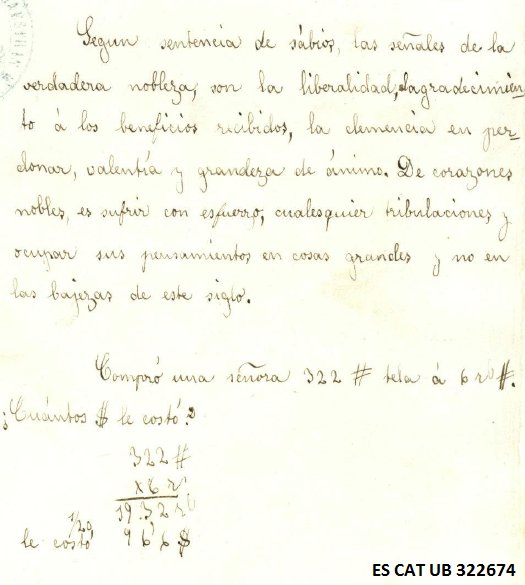 Segun sentencia de sábios, las señales de la
verdadera nobleza, son la liberalidad, elagradecimien-
to á los beneficios ricibidos, la clemencia en per-
donar, valentía y grandeza de ánimo. De corazones
nobles, es sufrir con esfuerzo, cualesquier tribulaciones, y
ocupar sus pensamientos en cosas grandes y no en
las bajezas de este siglo.
Compró una señora 322 # tela á 6 rˢ #.
¿Cuántos $ le costó?
322 #
x6 rˢ
19.32 rˢ
1/20
le costó 96'6 $
ES CAT UB 322674